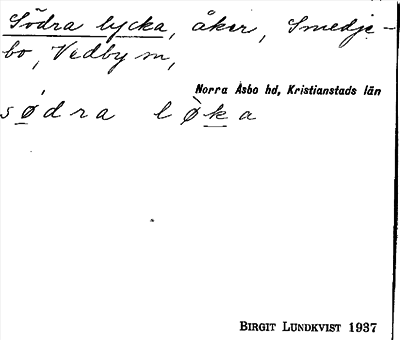 Södra lycka, åker, Smedje-
bo, Vedby sn,
Norra Åsbo hd, Kristianstads län
sǿdra lø̀ka
BIRGIT LUNDKVIST 1937